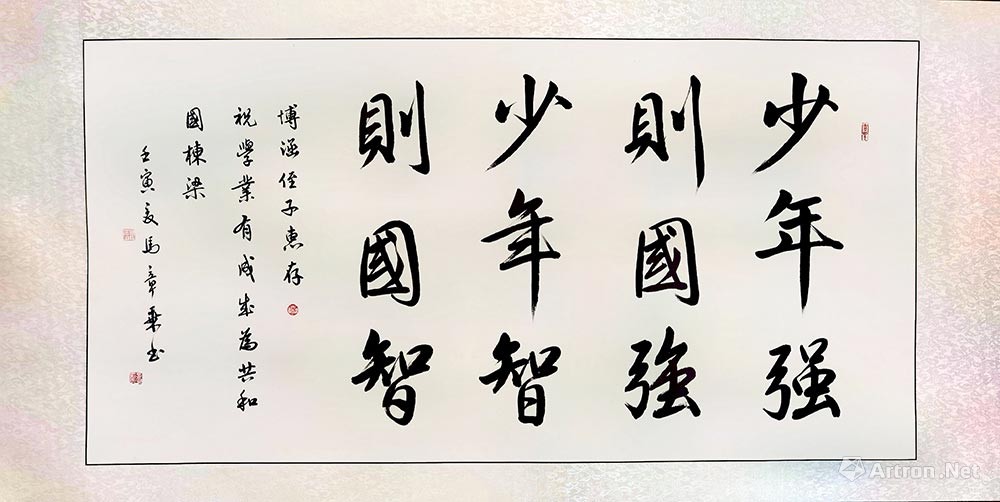 少年强
則國強
少年智
則國智
博涵侄子惠存
祝學業有成成為共和
國棟梁
壬寅夏馬章乘書
Artron.Net